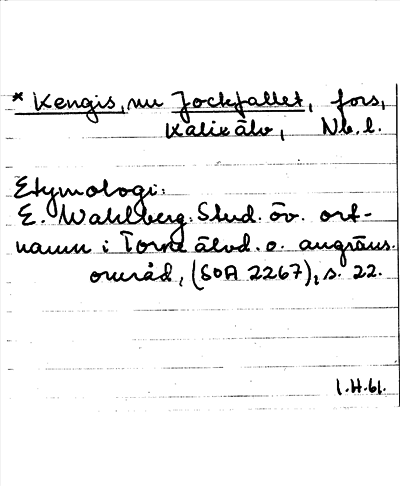 * Kengis, nu Jockfallet, fors,
Kalix älv, Nb. l.
Etymologi:
E. Wahlberg: Stud. öv. ort-
namn i Torne älvd. o. angräns.
område, (SOA 2267), s. 22.
I.H.61.